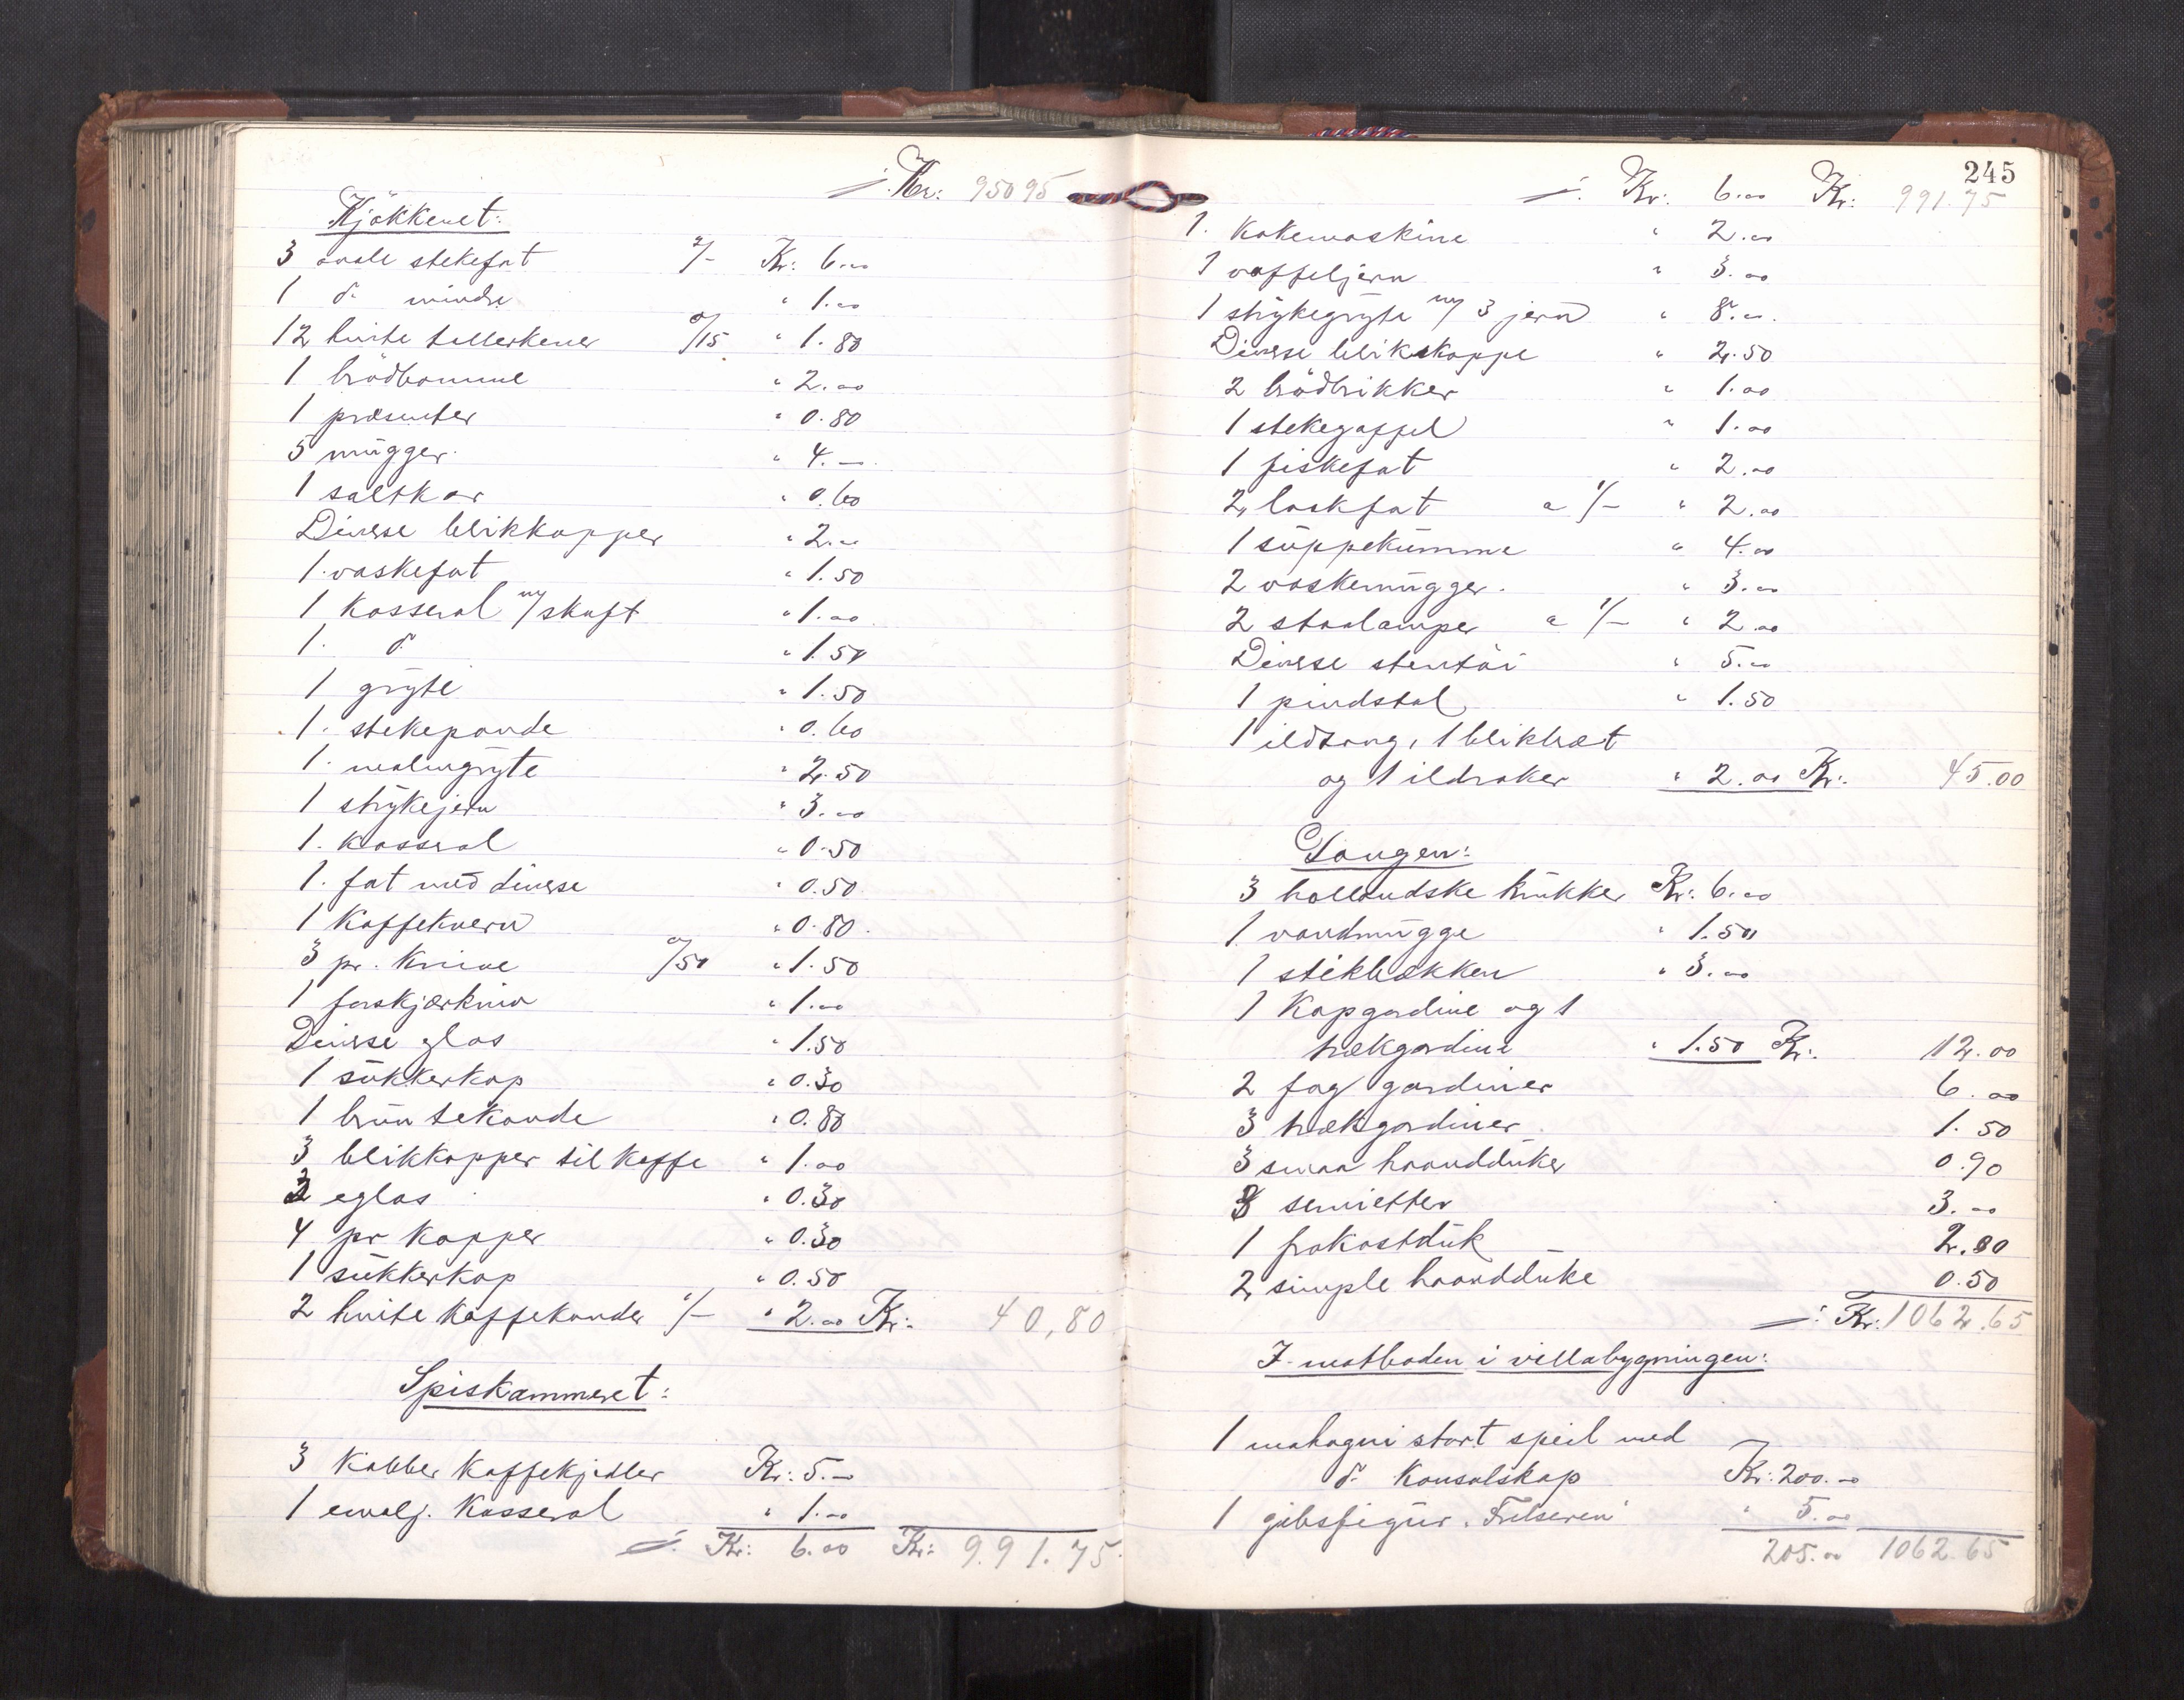 ./. Kr: 950 95
Kjökkenet:
3 ovale stekefat 2/- Kr: 6.00
1 do mindre " 1.00
12 hvite tallerkener a/15 " 1.80
1 brödbomme " 2.00
1 præsenter " 0.80
5 mugger " 4.00
1 saltkar " 0.60
Diverse blikkopper " 2.00
1 vaskefat " 1.50
1 Kasserol m/skaft " 1.00
1. do " 1.50
1 gryte " 1.50
1. stekepande " 0.60
1. malmgryte " 2.50
1 strykejern " 3.00
1. kasserol " 0.50
1. fat med diverse " 0.50
1 Kaffekvern " 0.80.
3 pr. Knive a/50 " 1.50
1 forskjærkniv " 1.00
Diverse glas " 1.50
1 sukkerkop " 0.30
1 brun tekande " 0.80
3 blikkopper til kaffe " 1.00
3 eglas " 0.30
4 pr kopper " 0.30
1 sukkerkop " 0.50
2 hvite kaffekander 1/- " 2.00 Kr: 40,80
Spiskammeret:
3 Kobber Kaffekjedler Kr: 5.00
1 emalj. Kasserol " 1.00
./. Kr: 6.00 Kr: 991.75
245
./. Kr: 6.00 Kr: 991.75
1. Kakemaskine " 2.00
1 vaffeljern " 3.00
1 strykegryte m/ 3 jern " 8.00.
Diverse blikskoppe " 2.50
2 brödbrikker " 1.00
1 stekegaffel " 1.00
1 fiskefat " 2.00
2 laskfat a 1/- " 2.00
1 suppekumme " 4.00
2 vaskemugger. " 3.00
2 staalamper a 1/- " 2.00
Diverse stentöi " 5.00
1 pindstol " 1.50
1 ildtang, 1 blikbræt
og 1 ildraker " 2.00 Kr: 45.00
Gangen:
3 hollandske krukker Kr: 6.00
1 vandmugge " 1.50
1 stikbækken " 3.00
1 Kapgardine og 1
trækgardine " 1.50 Kr: 12.00
2 fag gardiner 6.00
3 trækgardiner 1.50
3 smaa haandduker 0.90
8 servietter 3.00
1 frokostduk 2.00
2 simple haandduke 0.50
./. Kr: 1062.65
I matboden i villabygningen:
1 mahogni stort speil med
do Konsolskap Kr: 200.00
1 gibsfigur " Frelseren" " 5.00
205.00 1062.65